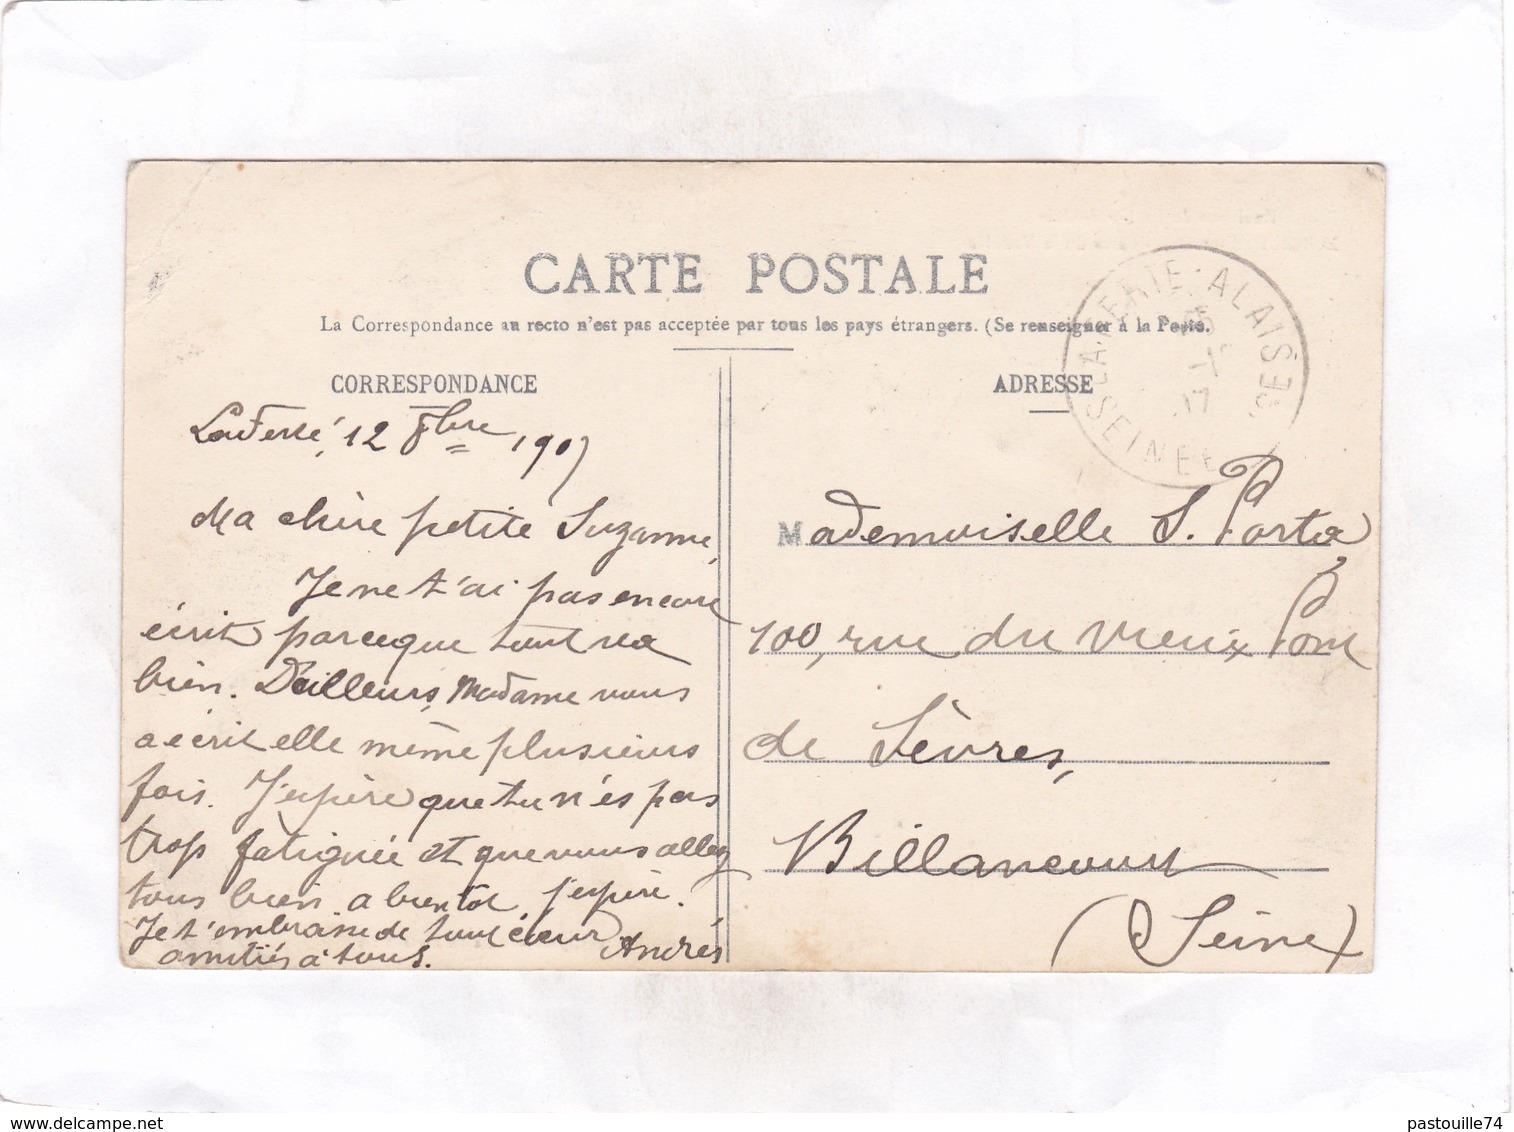 CARTE POSTALE
La Correspondance au recto n'est pas acceptée par tous les pays étrangers. (Se renseigner à la Poste.
CORRESPONDANCE
La Ferté, 12 8bre 1907
Ma chère petite Suzanne,
Je ne t'ai pas encore
écrit parceque tout va
bien. D'ailleurs, Madame vous
a écrit elle même plusieurs
fois. J'espère que tu n'es pas
trop fatiguée et que vous allez
tous bien, a bientot j'espère.
Je t'embrasse de tout cœur
amitiés à tous. Andrés
ADRESSE
Mademoiselle S. Porta,
100, rue du Vieux Pont
de Sèvres,
Billancourt
(Seine)
LA FERTE-ALAIS
SEINE
pastouille74
delcampe.net